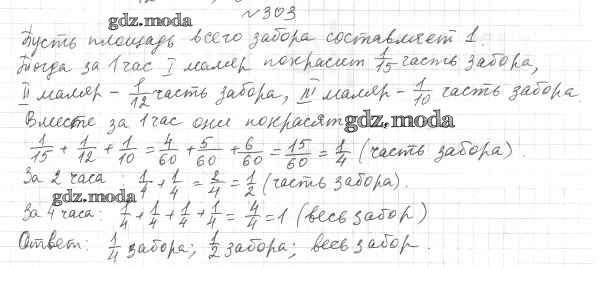 №303
gdz.moda
Пусть площадь всего забора составляет 1.
Тогда за 1 час I маляр покрасит 1/15 часть забора,
II маляр - 1/12 часть забора, III маляр - 1/10 часть забора.
Вместе за 1 час они покрасят gdz.moda
1/15 + 1/12 + 1/10 = 4/60 + 5/60 + 6/60 = 15/60 = 1/4 (часть забора).
За 2 часа : 1/4 + 1/4 = 2/4 = 1/2 (часть забора).
gdz.moda
За 4 часа: 1/4 + 1/4 + 1/4 + 1/4 = 4/4 = 1 (весь забор)
Ответ: 1/4 забора; 1/2 забора; весь забор.